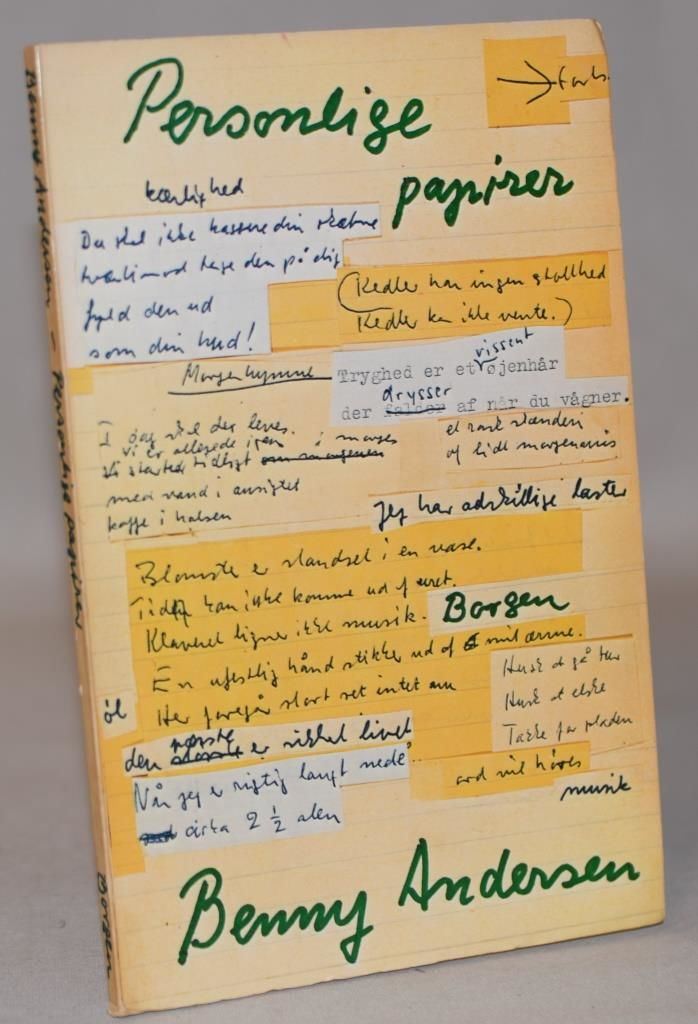 Personlige
→ forts.
papirer
kærlighed
Du skal ikke kassere din skæbne
tværtimod tage den på dig
fyld den ud
som din hud!
(Kedler har ingen stolthed
Kedler kan ikke vente.)
Morgenhymne
Tryghed er et vissent øjenhår
der falder drysser af når du vågner.
I dag skal der leves.
Vi er allerede igen
Vi started tidligt om morgenen i morges
med vand i ansigtet
kaffe i halsen
et rask
og lidt morgenavis
Jeg har adskillige laster
Blomster er standset i en vase.
Tid kan ikke komme ud af uret.
Klaveret ligner ikke musik.
Borgen
En ufestlig hånd stikker ud af mit ærme.
Her foregår stort set intet nu
Husk at gå tur
Husk at elske
Takke for pladen
øl
den næste er sikkert livet
Når jeg er rigtig langt nede
cirka 2 ½ alen
ord mit
musik
Benny Andersen
Benny Andersen – Personlige papirer
Borgen